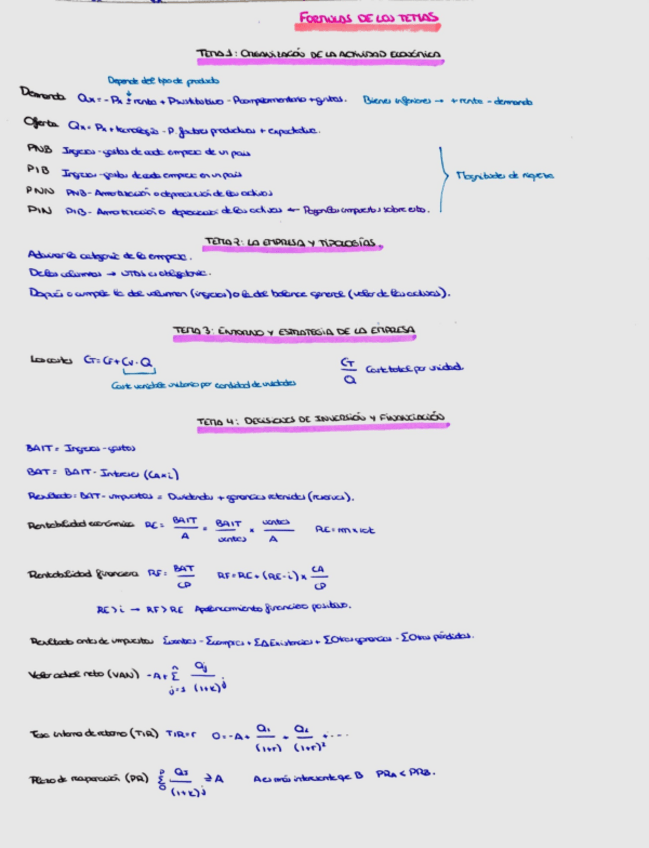 FORMULAS DE LOS TEMAS
TEMA 1: ORGANIZACIÓN DE LA ACTIVIDAD ECONÓMICA
Depende del tipo de producto
Demanda Qx = - Px ± renta + Psustitutivo - Pcomplementario + gustos. Bienes inferiores → + renta - demanda
Oferta Qx = Px + tecnología - P. factores productivos + expectativa.
PNB Ingresos - gastos de cada empresa de un país
PIB Ingresos - gastos de cada empresa en un país
Magnitudes de riqueza
PNN PNB - Amortización o depreciación de los activos
PIN PIB - Amortización o depreciación de los activos ← Pagan los impuestos sobre esto.
TEMA 2: LA EMPRESA Y TIPOLOGÍAS.
Adivinar la categoría de la empresa.
De los volúmenes → UTAs es obligatorio.
Después o cumple la del volumen (ingresos) o la del balance general (valor de los activos).
TEMA 3: ENTORNO Y ESTRATEGIA DE LA EMPRESA
Los costes CT = CF + Cv · Q
CT / Q Coste total por unidad.
Coste variable unitario por cantidad de unidades
TEMA 4: DECISIONES DE INVERSIÓN Y FINANCIACIÓN
BAIT = Ingresos - gastos
BAT = BAIT - Intereses (CA × i)
Resultado = BAT - impuestos = Dividendos + ganancias retenidas (reservas).
Rentabilidad económica RE = BAIT / A = BAIT / ventas × ventas / A RE = m × rot
Rentabilidad financiera RF = BAT / CP RF = RE + (RE - i) × CA / CP
RE > i → RF > RE Apalancamiento financiero positivo.
Resultado antes de impuestos Σventas - Σcompras + ΣΔExistencias + ΣOtras ganancias - ΣOtras pérdidas.
Valor actual neto (VAN) - A + Σ Qj / (1+k)^j n j=1
Tasa interna de retorno (TIR) TIR = r 0 = - A + Q1 / (1+r) + Q2 / (1+r)² + ....
Plazo de recuperación (PR) Σ Qj / (1+k)^j ≥ A A es más interesante que B PRA < PRB.